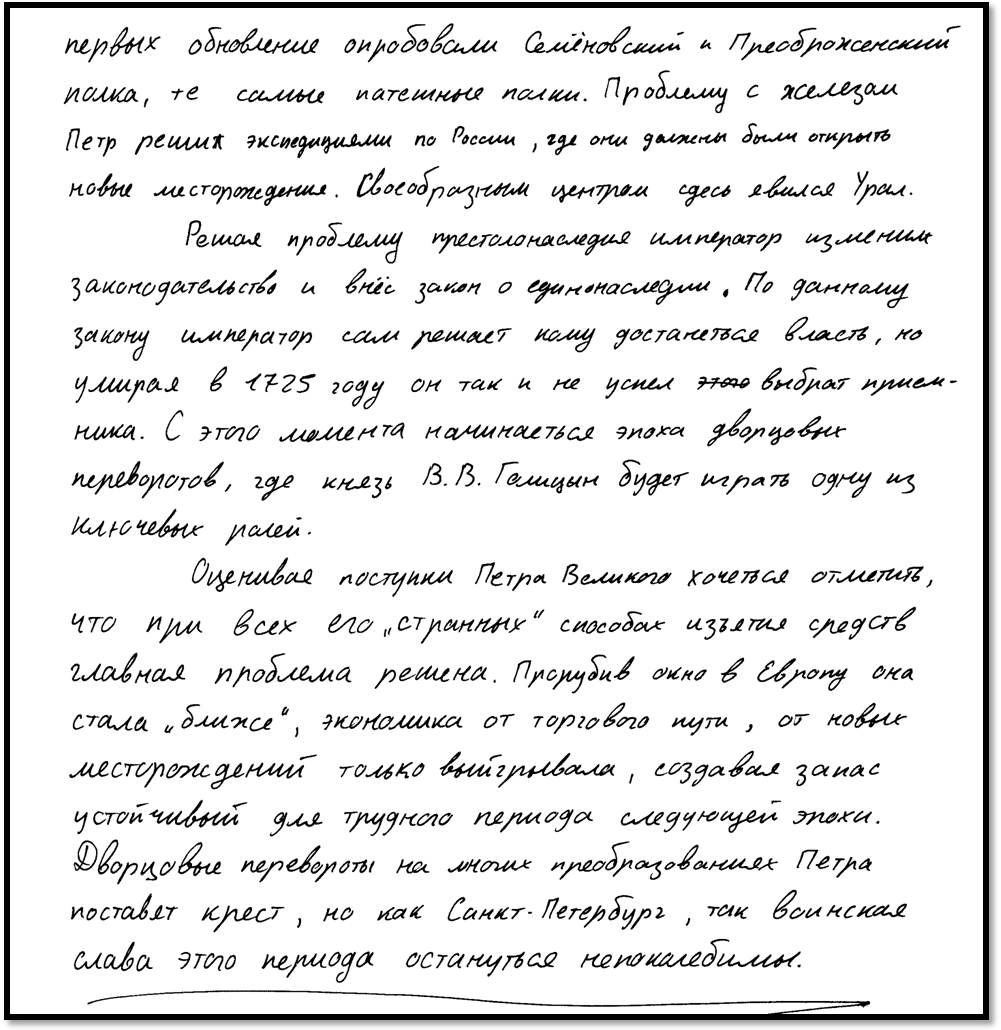 первых обновление опробовали Семёновский и Преоброженский
полка, те самые патешные полки. Проблему с железом
Петр решил экспедициями по России, где они должны были открыть
новые месторождения. Своеобразным центром сдесь евился Урал.
Решая проблему престолонаследия император изменил
законодательство и внёс закон о единонаследии. По данному
закону император сам решает кому достанеться власть, но
умирая в 1725 году он так и не успел ~~этого~~ выбрат прием-
ника. С этого момента начинаеться эпоха дворцовых
переворотов, где князь В.В. Голицын будет играть одну из
ключевых ролей.
Оценивая поступки Петра Великого хочеться отметить,
что при всех его „странных“ способах изъетия средств
главная проблема решена. Прорубив окно в Европу она
стала „ближе“, экономика от торгового пути, от новых
месторождений только выйгрывала, создавая запас
устойчивый для трудного периода следующей эпохи.
Дворцовые перевороты на многих преобразованиях Петра
поставят крест, но как Санкт-Петербург, так воинская
слава этого периода остануться непоколебимы.